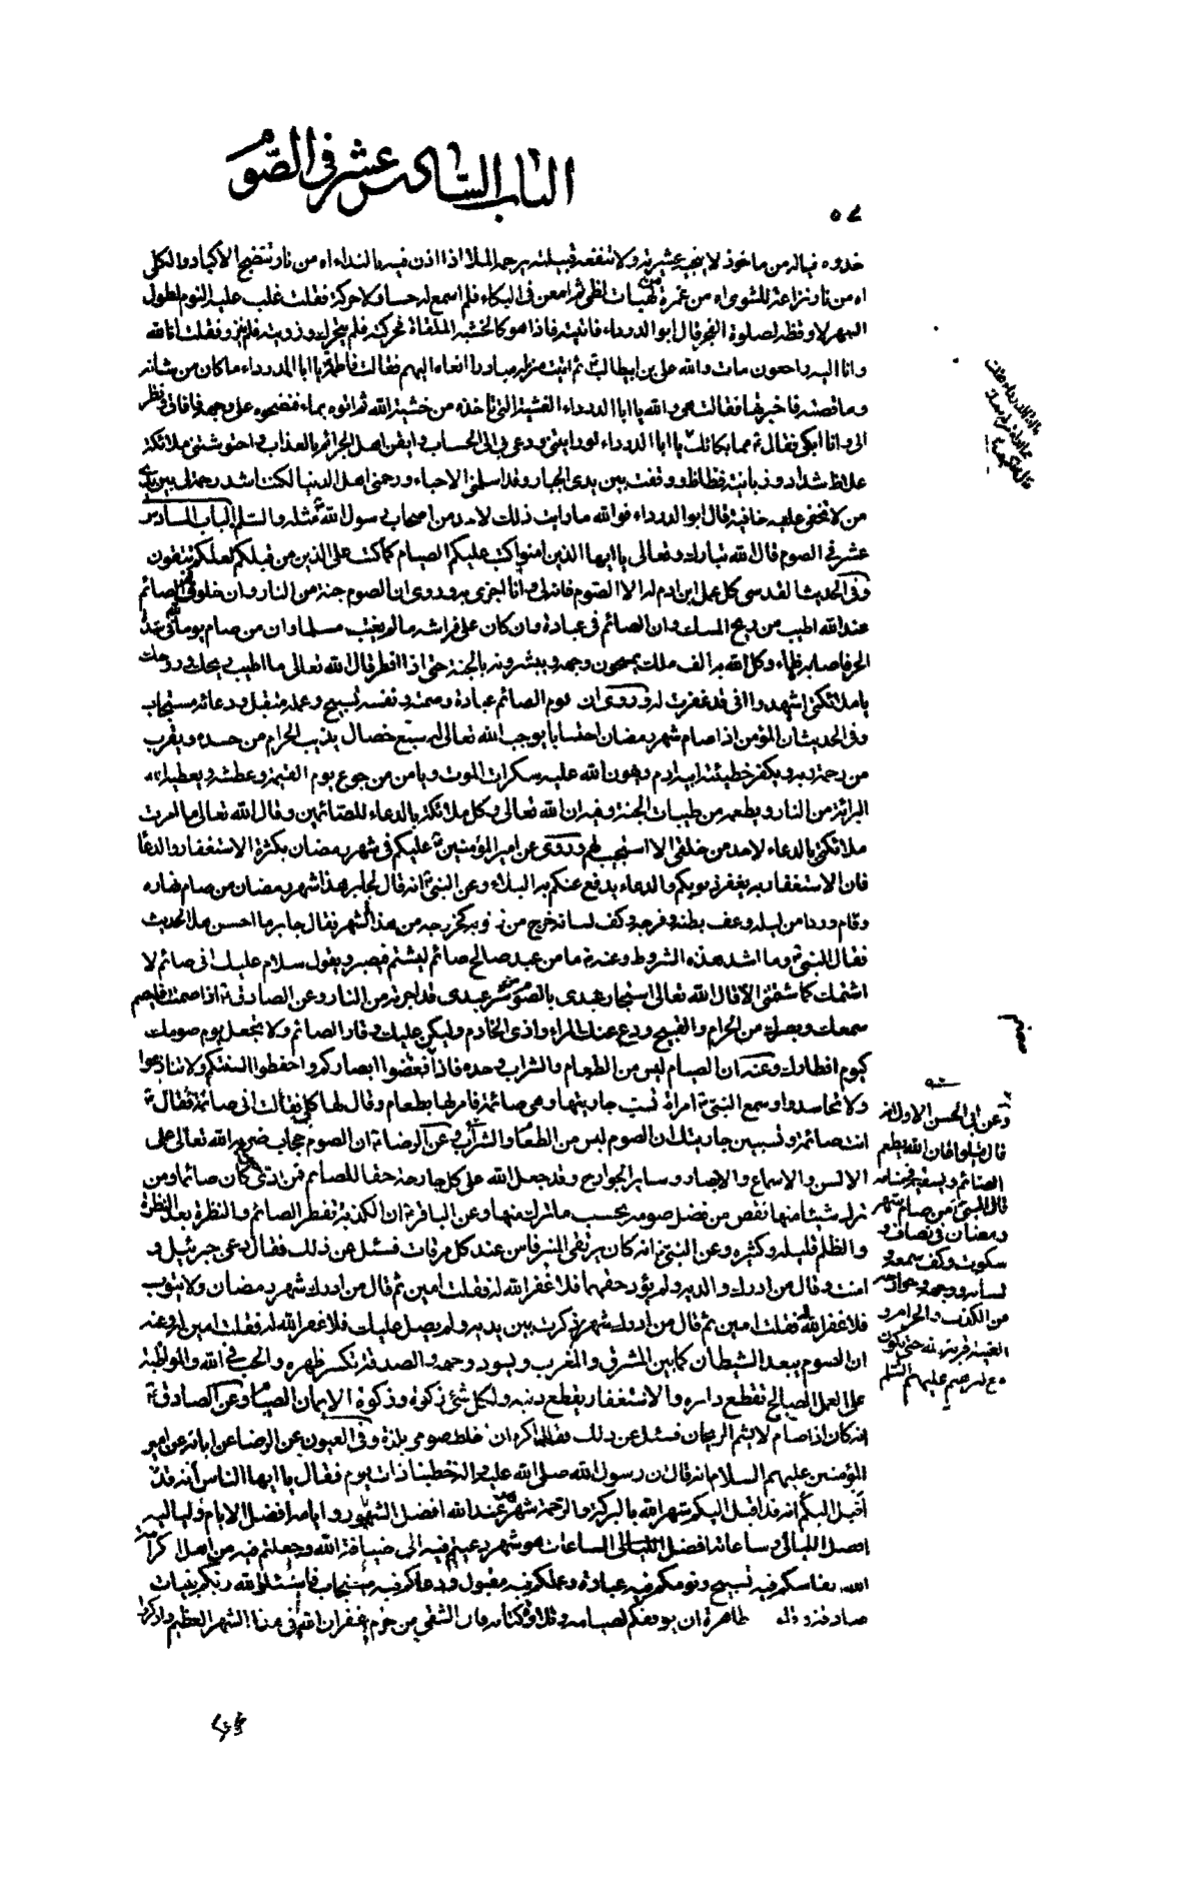 الباب السادس عشر في الصوم
٥٧
خذوه فياله من ماخوذ لا ينجيه عشيرته ولا تنفعه قبيلته يرحمه الملا اذا اذن فيه بالنداء اه من نار تنضج الاكباد والكلى
اه من نار نزاعة للشوى اه من غمرة من لهبات لظى ثم امعن في البكاء فلم اسمع له حسا ولا حركة فقلت غلب عليه النوم لطول
السهر لاوقظه لصلوة الفجر قال ابو الدرداء فاتيته فاذا هو كالخشبة الملقاة فحركته فلم يتحرك وزويته فلم ينزو فقلت انا لله
وانا اليه راجعون مات والله علي بن ابيطالب ثم اتيت منزله مبادرا انعاه اليهم فقالت فاطمة يا ابا الدرداء ما كان من شانه
وما قصته فاخبرتها فقالت هي والله يا ابا الدرداء الغشية التي تاخذه من خشية الله ثم اتوه بماء فنضحوه على وجهه فافاق ونظر
الي وانا ابكي فقال مم بكائك يا ابا الدرداء لو رايتني ودعي بي الى الحساب وايقن اهل الجرائم بالعذاب واحتوشتني ملائكة
غلاظ شداد وزبانية فظاظ ووقفت بين يدى الجبار وقد اسلمني الاحباء ورحمني اهل الدنيا لكنت اشد رحمة لي بين يدي
من لا تخفى عليه خافية قال ابو الدرداء فوالله ما رايت ذلك لاحد من اصحاب رسول الله مثله والسلم الباب السادس
عشر في الصوم قال الله تبارك وتعالى يا ايها الذين امنوا كتب عليكم الصيام كما كتب على الذين من قبلكم لعلكم تتقون
وفي الحديث القدسي كل عمل ابن ادم له الا الصوم فانه لي وانا اجزى به وروى ان الصوم جنة من النار وان خلوق فم الصائم
عند الله اطيب من ريح المسك وان الصائم في عبادة وان كان على فراشه ما لم يغتب مسلما وان من صام يوما في شدة
الحر فاصابه ظماء وكل الله به الف ملك يمسحون وجهه ويبشرونه بالجنة حتى اذا افطر قال الله تعالى ما اطيب ريحك وروحك
يا ملائكتي اشهدوا اني قد غفرت له وروى ان نوم الصائم عبادة وصمته ونفسه تسبيح وعمله متقبل ودعائه مستجاب
وفي الحديث ان المؤمن اذا صام شهر رمضان احتسابا يوجب الله تعالى له سبع خصال يذيب الحرام من جسده ويقرب
من رحمة ربه ويكفر خطيئة ابيه ادم ويهون الله عليه سكرات الموت ويامن من جوع يوم القيمة وعطشه ويعطيه الله
البرائة من النار ويطعمه من طيبات الجنة وفيه ان الله تعالى وكل ملائكته بالدعاء للصائمين وقال الله تعالى ما امرت
ملائكتي بالدعاء لاحد من خلقي الا استجيب لهم وروى عن امير المؤمنين عليكم في شهر رمضان بكثرة الاستغفار والدعا
فان الاستغفار به يغفر ذنوبكم والدعاء يدفع عنكم به البلاء وعن النبي انه قال لجابر هذا شهر رمضان من صام نهاره
وقام وردا من ليله وعف بطنه وفرجه وكف لسانه خرج من ذنوبه كخروجه من هذا الشهر فقال جابر ما احسن هذا الحديث
فقال النبي وما اشد هذه الشروط وعنه ما من عبد صالح صائم يشتم فيصبر ويقول سلام عليك اني صائم لا
اشتمك كما شتمتني الا قال الله تعالى استجار عبدى بالصوم من شر عبدى قد اجرته من النار وعن الصادق اذا صمت فليصم
سمعك وبصرك من الحرام والقبيح ودع عنك المراء واذى الخادم وليكن عليك وقار الصائم ولا تجعل يوم صومك
كيوم افطارك وعنه ان الصيام ليس من الطعام والشراب وحده فاذا فغضوا ابصاركم واحفظوا السنتكم ولا تنازعوا
ولا تحاسدوا وسمع النبي امراة تسب جاريتها وهي صائمة فامر لها بطعام وقال لها كلي فقالت اني صائمة فقال
انت صائمة وتسبين جاريتك ان الصوم ليس من الطعام والشراب وعن الرضا ان الصوم حجاب ضربه الله تعالى على
الالسن والاسماع والابصار وساير الجوارح وقد جعل الله على كل جارحة حقا للصائم فمن ادى كان صائما ومن
ترك شيئا منها نقص من فضل صومه بحسب ما ترك منها وعن الباقر ان الكذبة تفطر الصائم والنظرة بعد النظرة
والظلم قليله وكثيره وعن النبي انه كان يرتقي المنبر فامن عند كل مرقات فسئل عن ذلك فقال دعى جبرئيل و
امنت وقال من ادرك والديه ولم يؤد حقهما فلا غفر الله له فقلت امين ثم قال من ادرك شهر رمضان ولا يتوب
فلا غفر الله له فقلت امين ثم قال من ادرك شهر ذكرت بين يديه ولم يصل عليك فلا غفر الله له فقلت امين وعنه
ان الصوم يبعد الشيطان كما بين المشرق والمغرب ويسود وجهه والصدقة تكسر ظهره والحب في الله والمواظبة
على العمل الصالح تقطع دابره والاستغفار يقطع وتينه ولكل شئ زكوة وزكوة الابدان الصيام وعن الصادق
انه كان اذا صام لا يشم الريحان فسئل عن ذلك فقال اكره ان اخلط صومي بلذة وفي العيون عن الرضا عن ابائه عن امير
المؤمنين عليهم السلام انه قال ان رسول الله صلى الله عليه واله خطبنا ذات يوم فقال يا ايها الناس انه قد
اقبل اليكم انه قد اقبل اليكم شهر الله بالبركة والرحمة شهر عند الله افضل الشهور وايامه افضل الايام ولياليه
افضل الليالي وساعاته افضل الساعات هو شهر دعيتم فيه الى ضيافة الله وجعلتم فيه من اهل كرامة
الله انفاسكم فيه تسبيح ونومكم فيه عبادة وعملكم فيه مقبول ودعاؤكم فيه مستجاب فاسئلوا الله ربكم بنيات
صادقة وقلوب طاهرة ان يوفقكم لصيامه وتلاوة كتابه فان الشقي من حرم غفران الله في هذا الشهر العظيم واذكروا
وعن ابي الحسن الاول انه
قال قيلوا فان الله يطعم
الصائم ويسقيه في منامه
قال النبي من صام شهر
رمضان في انصات و
سكوت وكف سمعه و
لسانه وجوارحه
من الكذب والحرام و
الغيبة قربه الله حتى يكون